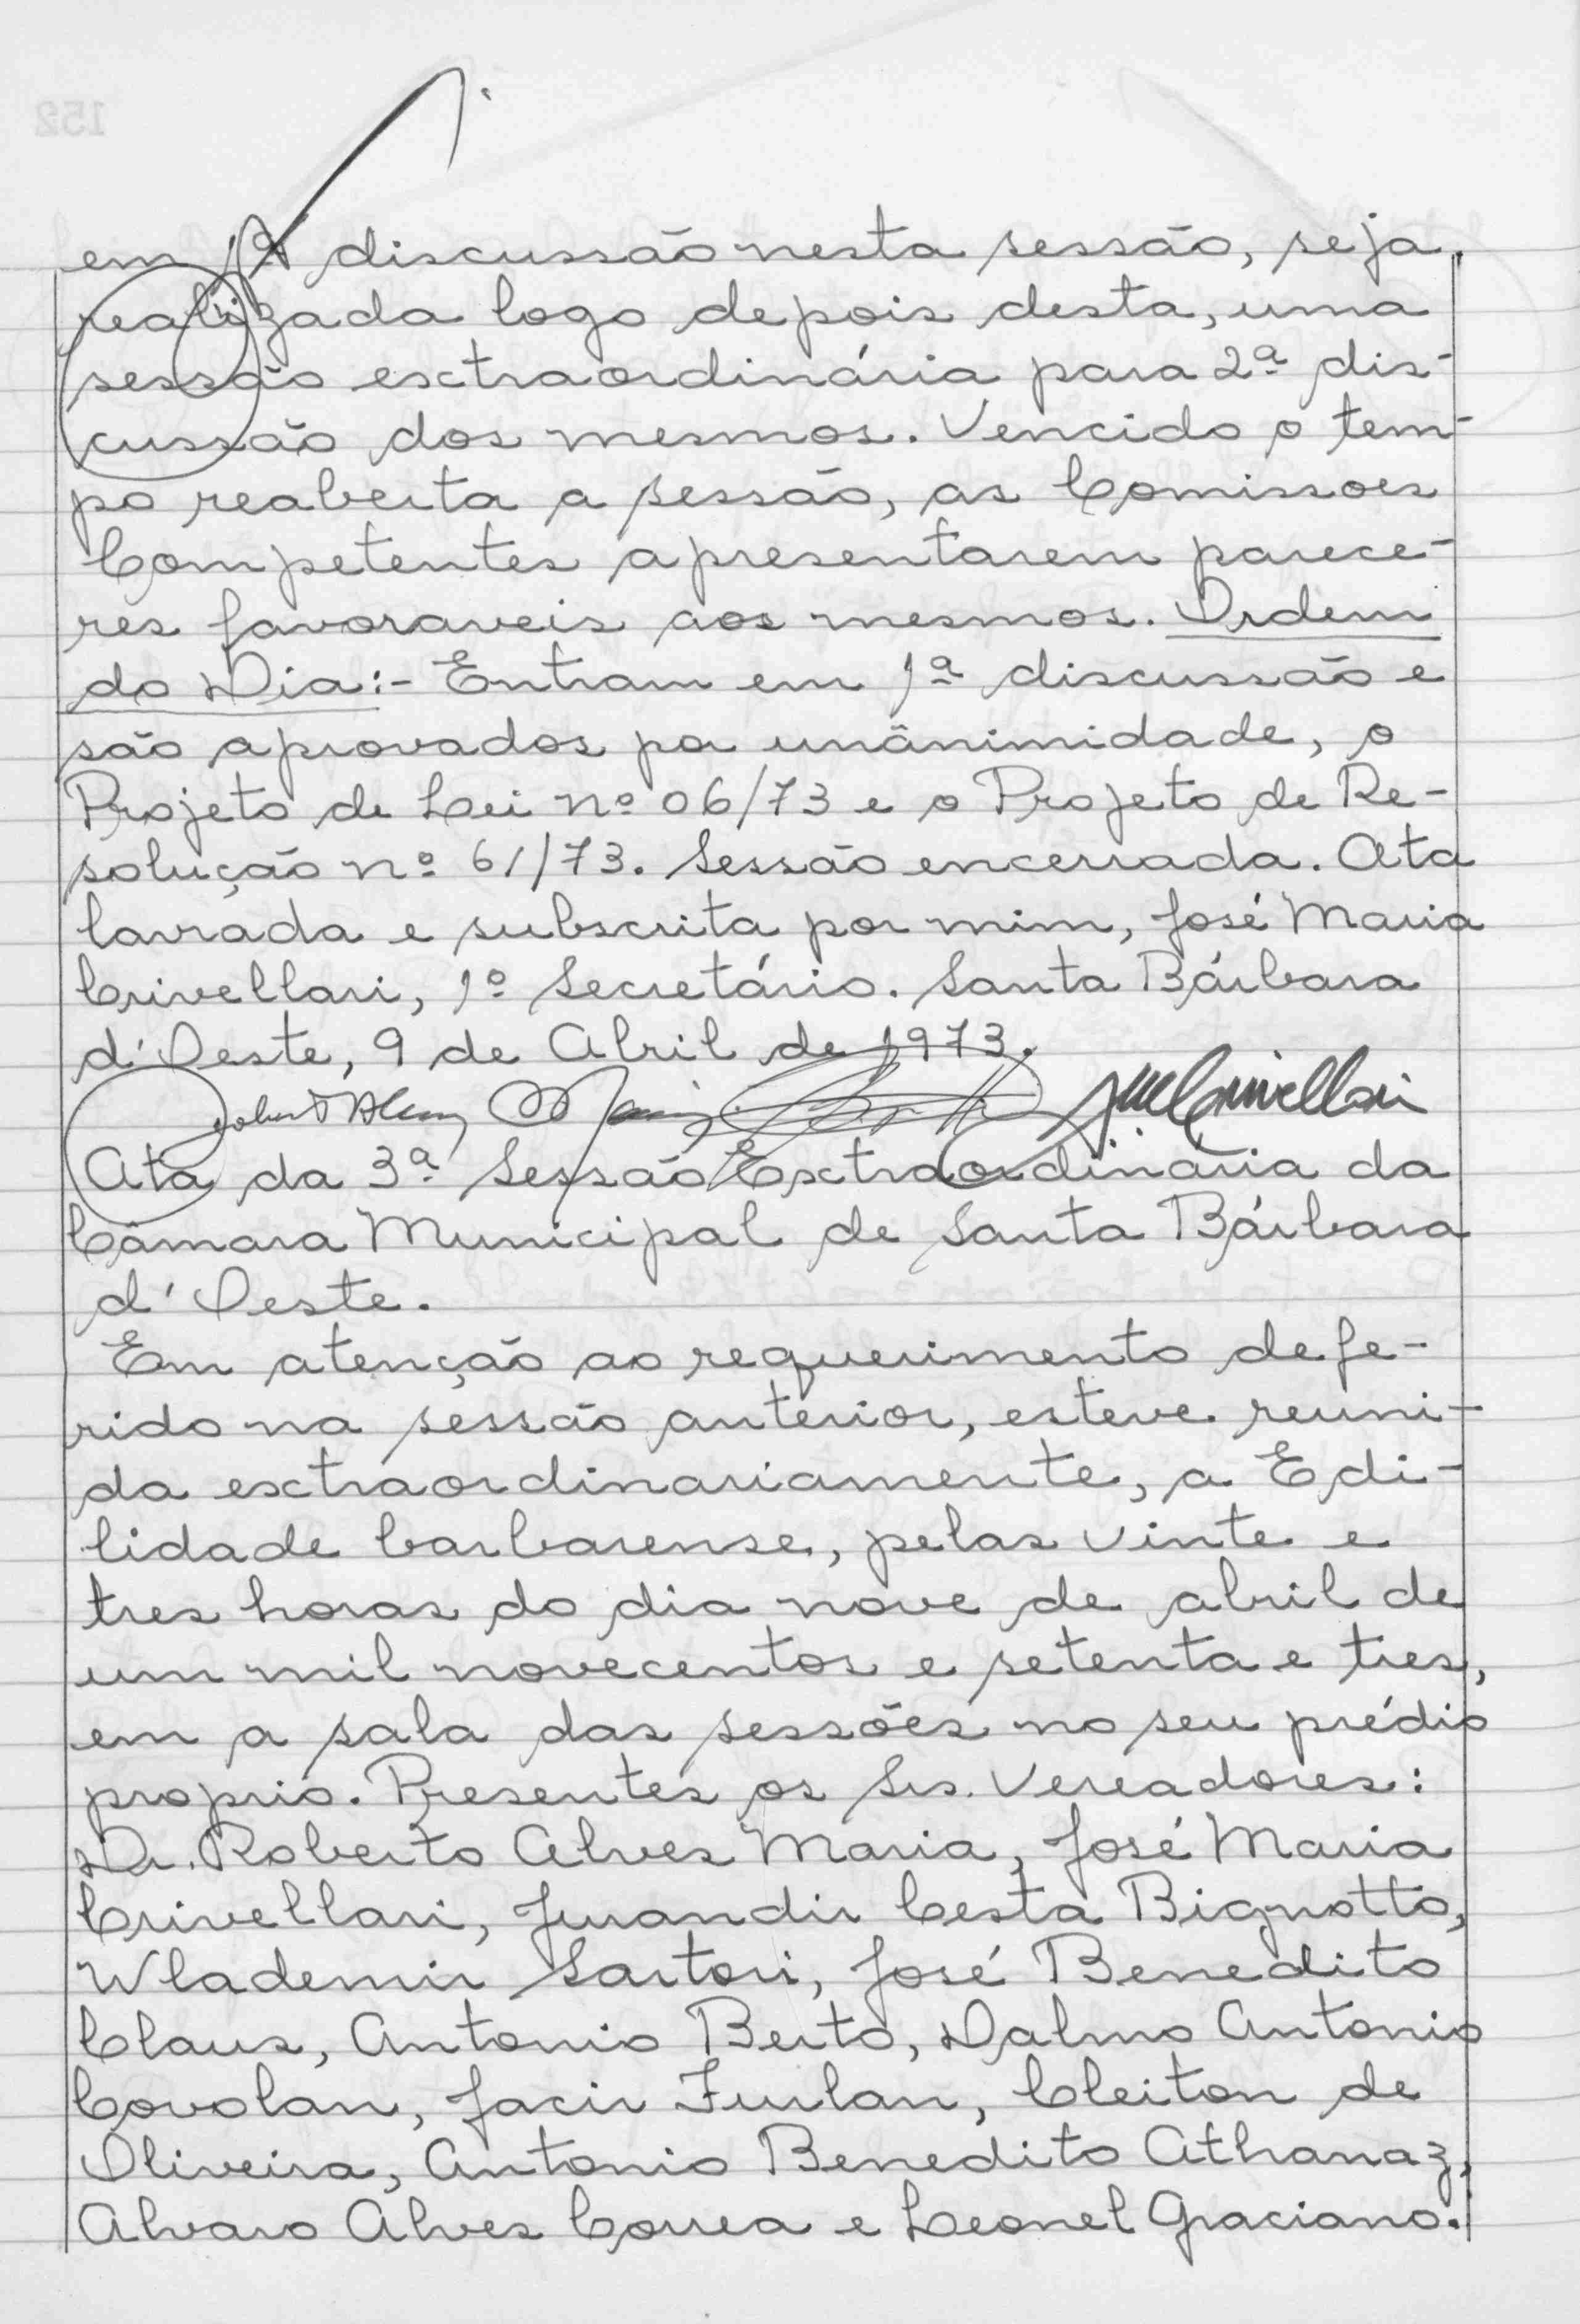 em 1ª discussão nesta sessão, seja
realizada logo depois desta, uma
sessão extraordinária para 2ª dis-
cussão dos mesmos. Vencido o tem-
po reaberta a sessão, as Comissoes
Competentes apresentarem parece-
res favoraveis aos mesmos. Ordem
do Dia:- Entram em 1ª discussão e
são aprovados por unânimidade, o
Projeto de Lei nº 06/73 e o Projeto de Re-
solução nº 61/73. Sessão encerrada. Ata
lavrada e subscrita por mim, José Maria
Crivellari, 1º Secretário. Santa Bárbara
d'Oeste, 9 de Abril de 1973.
JMCrivellari
Ata da 3ª Sessão Extraordinária da
Câmara Municipal de Santa Bárbara
d'Oeste.
Em atenção ao requerimento defe-
rido na sessão anterior, esteve reuni-
da extraordinariamente, a Edi-
lidade barbarense, pelas vinte e
tres horas do dia nove de abril de
um mil novecentos e setenta e tres,
em a sala das sessões no seu prédio
proprio. Presentes os Srs. Vereadores:
Dr. Roberto Alves Maria, José Maria
Crivellari, Jurandir Cesta Bignotto,
Wlademir Sartori, José Benedito
Claus, Antonio Berto, Dalmo Antonio
Covolan, Jacir Furlan, Cleiton de
Oliveira, Antonio Benedito Athanaz,
Alvaro Alves Correa e Leonel Graciano.